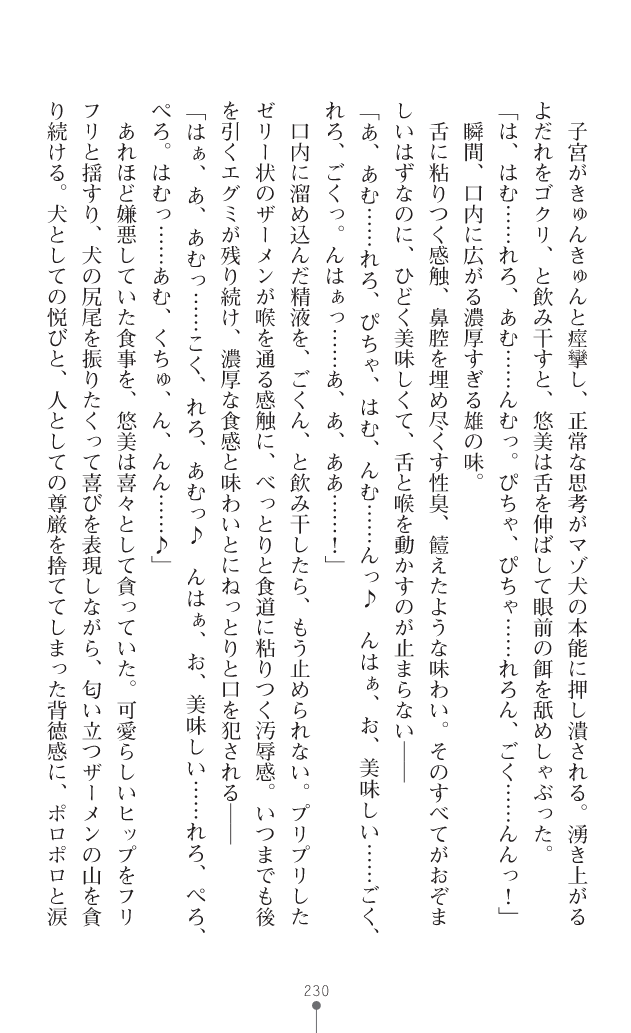 子宮がきゅんきゅんと痙攣し、正常な思考がマゾ犬の本能に押し潰される。湧き上がる
よだれをゴクリ、と飲み干すと、悠美は舌を伸ばして眼前の餌を舐めしゃぶった。
「は、はむ……れろ、あむ……んむっ。ぴちゃ、ぴちゃ……れろん、ごく……んんっ！」
瞬間、口内に広がる濃厚すぎる雄の味。
舌に粘りつく感触、鼻腔を埋め尽くす性臭、饐えたような味わい。そのすべてがおぞま
しいはずなのに、ひどく美味しくて、舌と喉を動かすのが止まらない――
「あ、あむ……れろ、ぴちゃ、はむ、んむ……んっ♪　んはぁ、お、美味しい……ごく、
れろ、ごくっ。んはぁっ……あ、あ、ああ……！」
口内に溜め込んだ精液を、ごくん、と飲み干したら、もう止められない。プリプリした
ゼリー状のザーメンが喉を通る感触に、べっとりと食道に粘りつく汚辱感。いつまでも後
を引くエグミが残り続け、濃厚な食感と味わいとにねっとりと口を犯される――
「はぁ、あ、あむっ……こく、れろ、あむっ♪　んはぁ、お、美味しい……れろ、ぺろ、
ぺろ。はむっ……あむ、くちゅ、ん、んん……♪」
あれほど嫌悪していた食事を、悠美は喜々として貪っていた。可愛らしいヒップをフリ
フリと揺すり、犬の尻尾を振りたくって喜びを表現しながら、匂い立つザーメンの山を貪
り続ける。犬としての悦びと、人としての尊厳を捨ててしまった背徳感に、ポロポロと涙
230